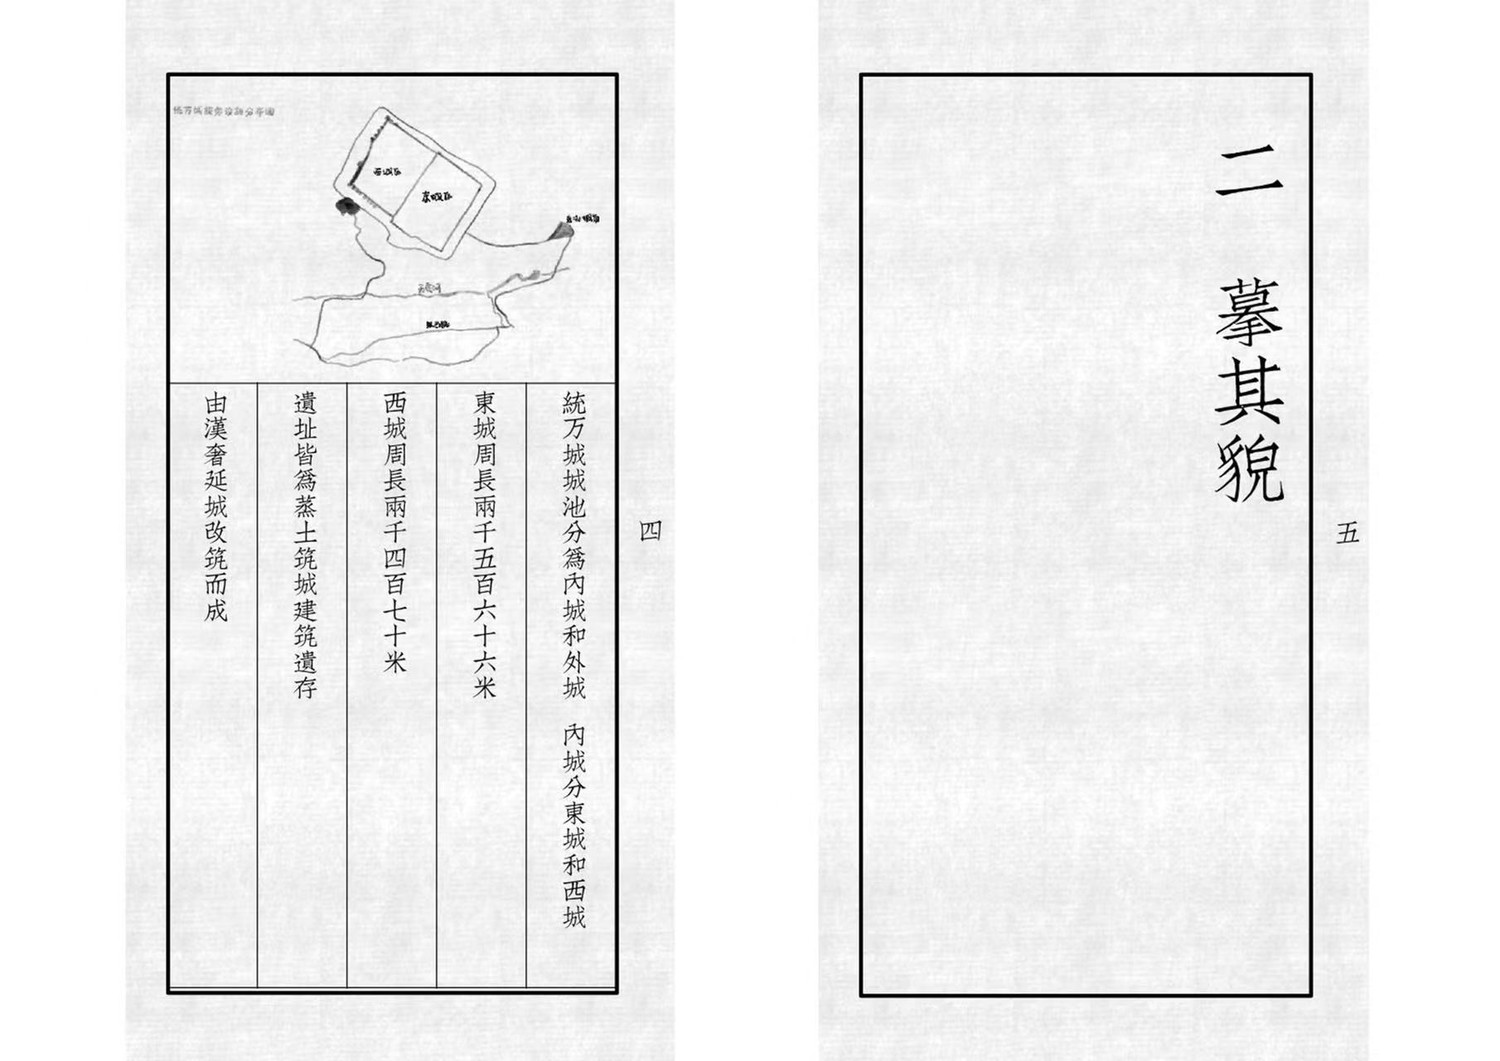 西城區
東城區
統万城城池分爲內城和外城　內城分東城和西城
東城周長兩千五百六十六米
西城周長兩千四百七十米
遺址皆爲蒸土筑城建筑遺存
由漢奢延城改筑而成
四
二　摹其貌
五